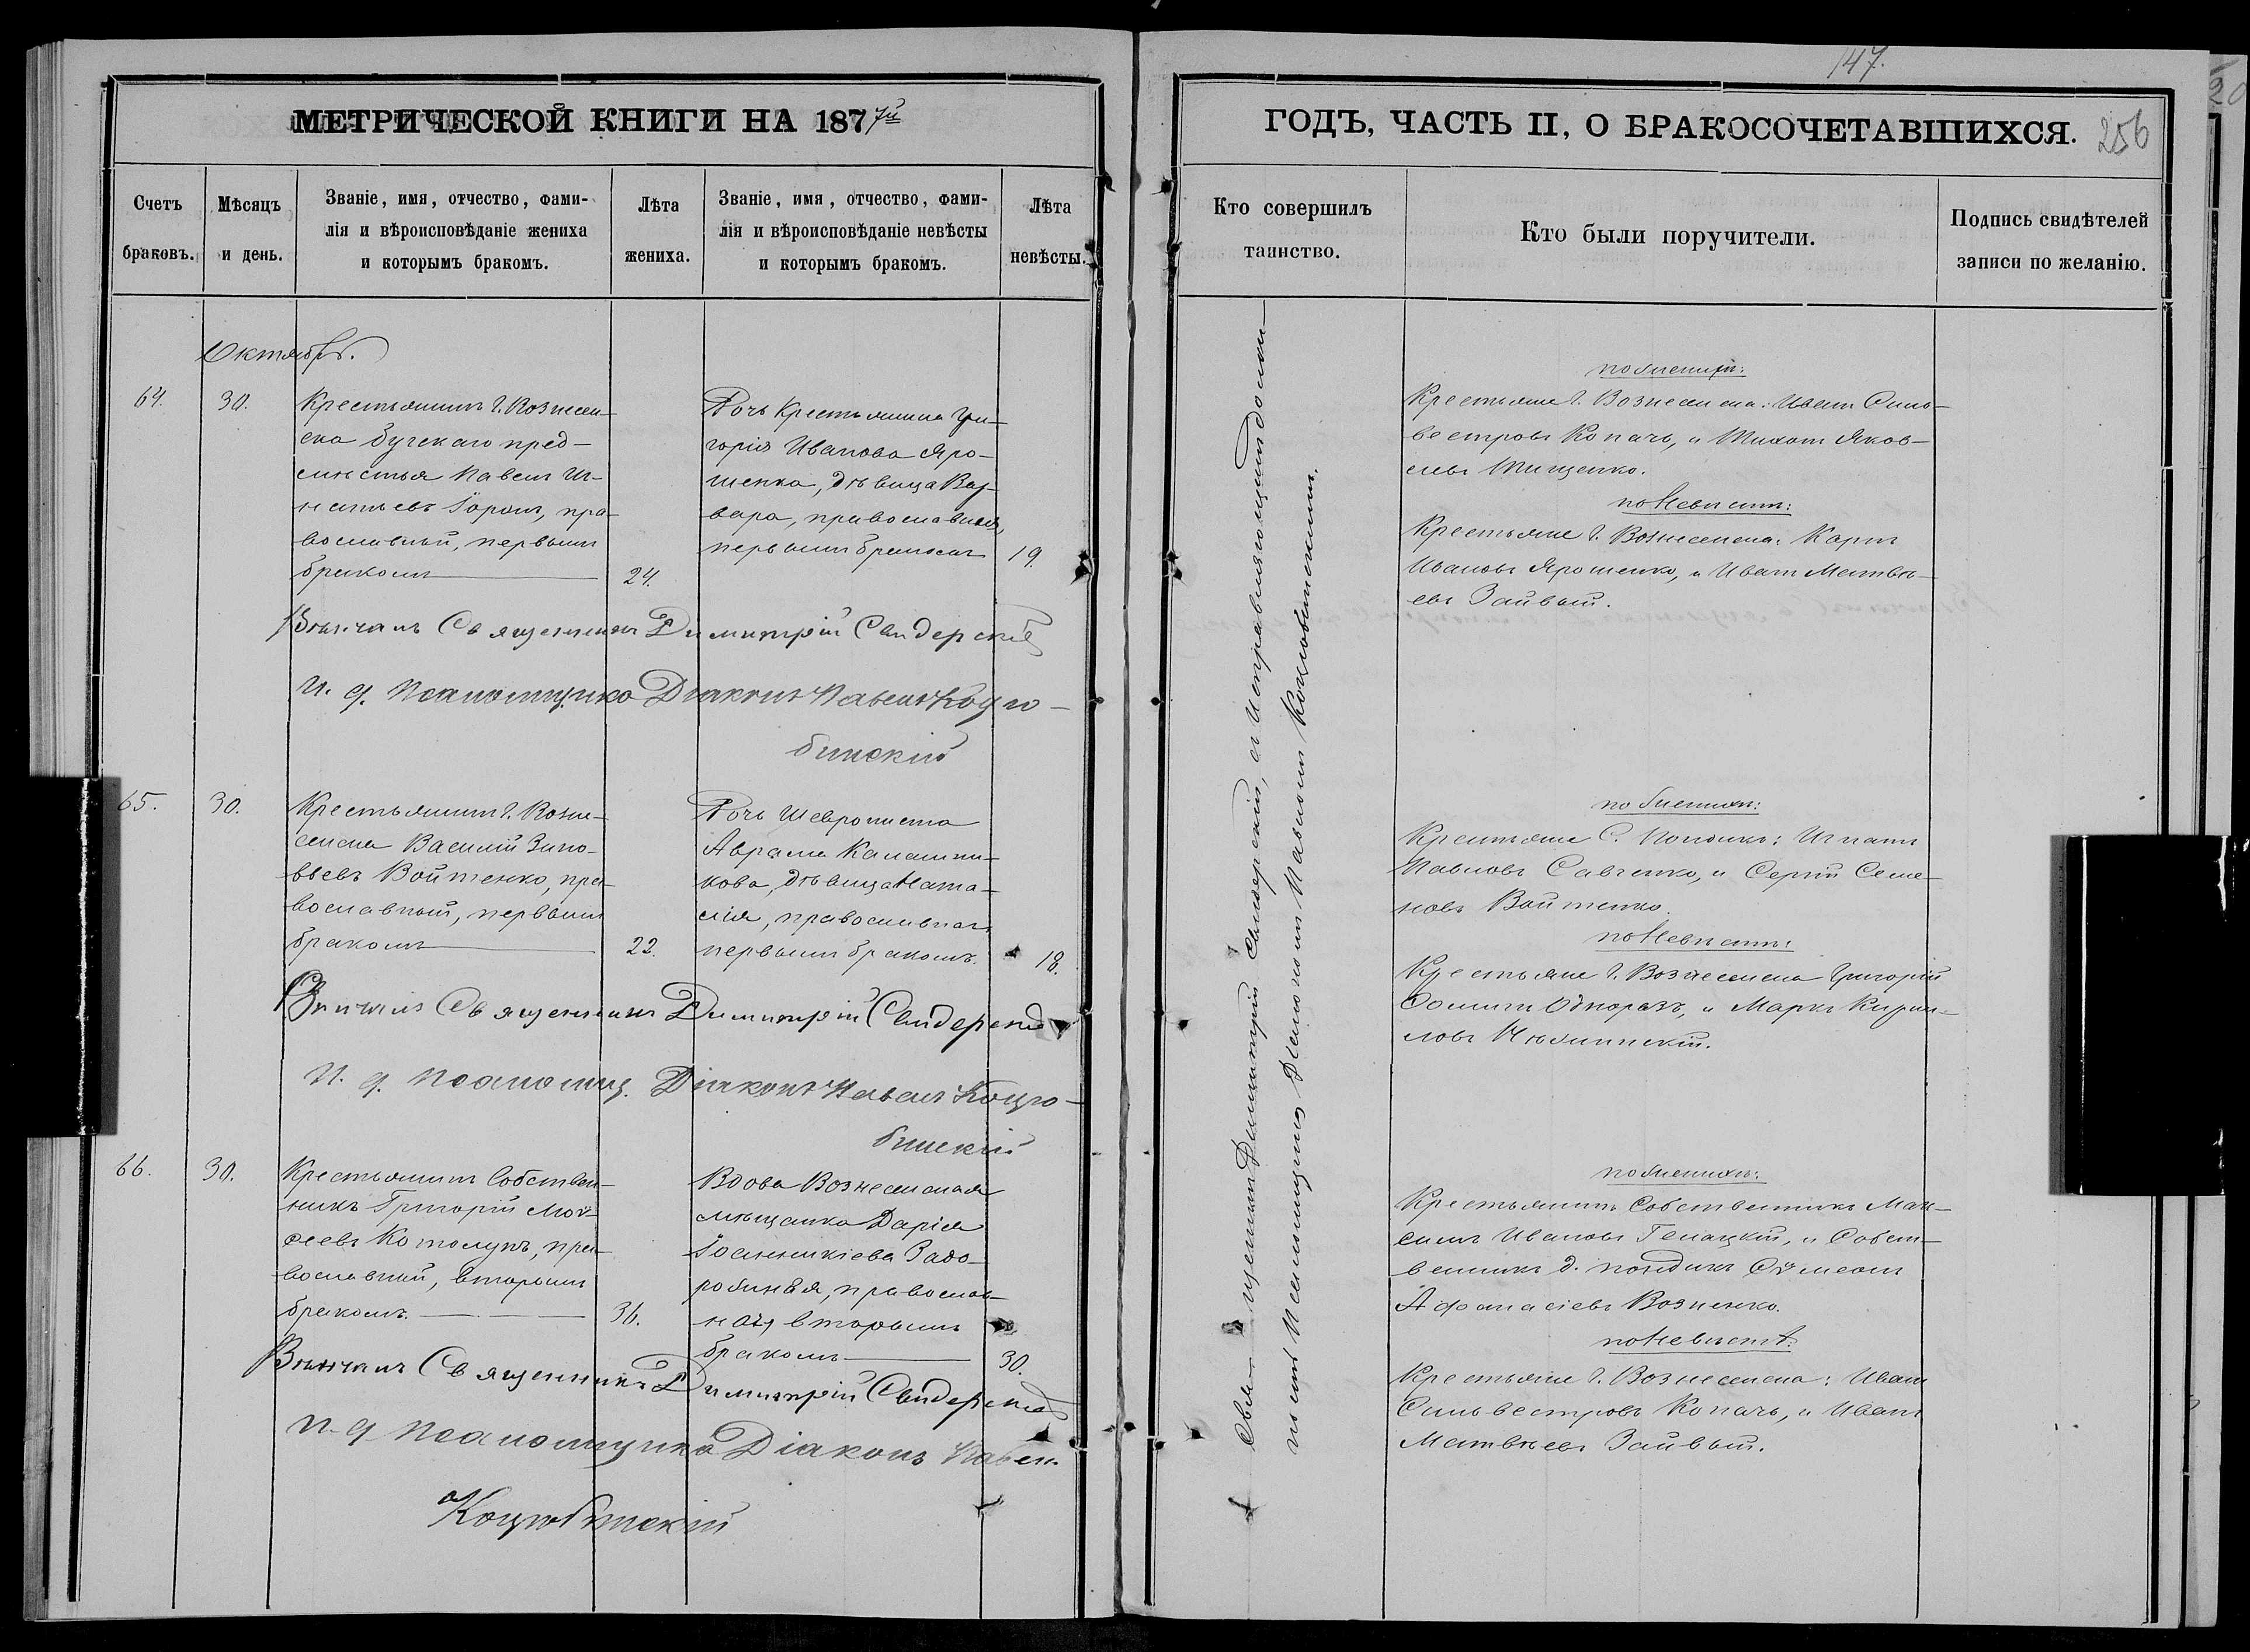 147.
МЕТРИЧЕСКОЙ КНИГИ НА 1877й
ГОДЪ, ЧАСТЬ II, О БРАКОСОЧЕТАВШИХСЯ.
256
Счетъ браковъ.
Мѣсяцъ и день.
Званіе, имя, отчество, фами-
лія и вѣроисповѣданіе жениха
и которымъ бракомъ.
Лѣта жениха.
Званіе, имя, отчество, фами-
лія и вѣроисповѣданіе невѣсты
и которымъ бракомъ.
Лѣта невѣсты.
Кто совершилъ
таинство.
Кто были поручители.
Подпись свидѣтелей
записи по желанію.
Октябрь.
64.
30.
Крестьянинъ г. Вознесен-
ска бугскаго пред-
мѣстья Павелъ Иг-
натьевъ, пра-
вославный, первымъ
бракомъ
24.
Дочь Крестьянина Гри-
горія Иванова Яро-
шенка, дѣвица Вар-
вара, православная,
первымъ бракомъ
19.
Вѣнчалъ Священникъ Димитрій Свидерскій
И. д. Псаломщика Діаконъ Павелъ Коцю-
бинскій
65.
30.
Крестьянинъ г. Возне-
сенска Василій Зино-
вьевъ Войтенко, пра-
вославный, первымъ
бракомъ
22.
Дочь
Аврама Калашни-
кова, дѣвица Ната-
лія, православная
первымъ бракомъ.
18.
Вѣнчалъ Священникъ Димитрій Свидерскій
И. д. Псаломщ. Діаконъ Павелъ Коцю-
бинскій
66.
30.
Крестьянинъ Собствен-
никъ Григорій Мой-
сеевъ, пра-
вославный, вторымъ
бракомъ.
36.
Вдова Вознесенская
мѣщанка Дарія
Іоанникіева Задо-
рожная, православ-
ная, вторымъ
бракомъ
30.
Вѣнчалъ Священникъ Димитрій Свидерскій
И. д. Псаломщика Діаконъ Павелъ
Коцюбинскій
Священникъ Димитрій Свидерскій, съ Исправляющимъ долж-
ность Псаломщика Діакономъ Павломъ Коцюбинскимъ.
по женихѣ:
Крестьяне г. Вознесенска: Иванъ Силь-
вестровъ Копачь, и Яков-
левъ Тищенко.
по Невѣстѣ:
Крестьяне г. Вознесенска: Карпъ
Ивановъ Ярошенко, и Иванъ Матвѣ-
евъ Зайвый.
по женихѣ:
Крестьяне С. Игнатъ
Павловъ Савченко, и Сергій Семе-
новъ Войтенко.
по Невѣстѣ:
Крестьяне г. Вознесенска Григорій
Ѳоминъ, и Марко Кирил-
ловъ
по женихѣ:
Крестьянинъ Собственникъ Мак-
симъ Ивановъ, и Собст-
венникъ д. Сѵмеонъ
Афанасіевъ Возненко.
по Невѣстѣ:
Крестьяне г. Вознесенска: Иванъ
Сильвестровъ Копачь, и Иванъ
Матвѣевъ Зайвый.